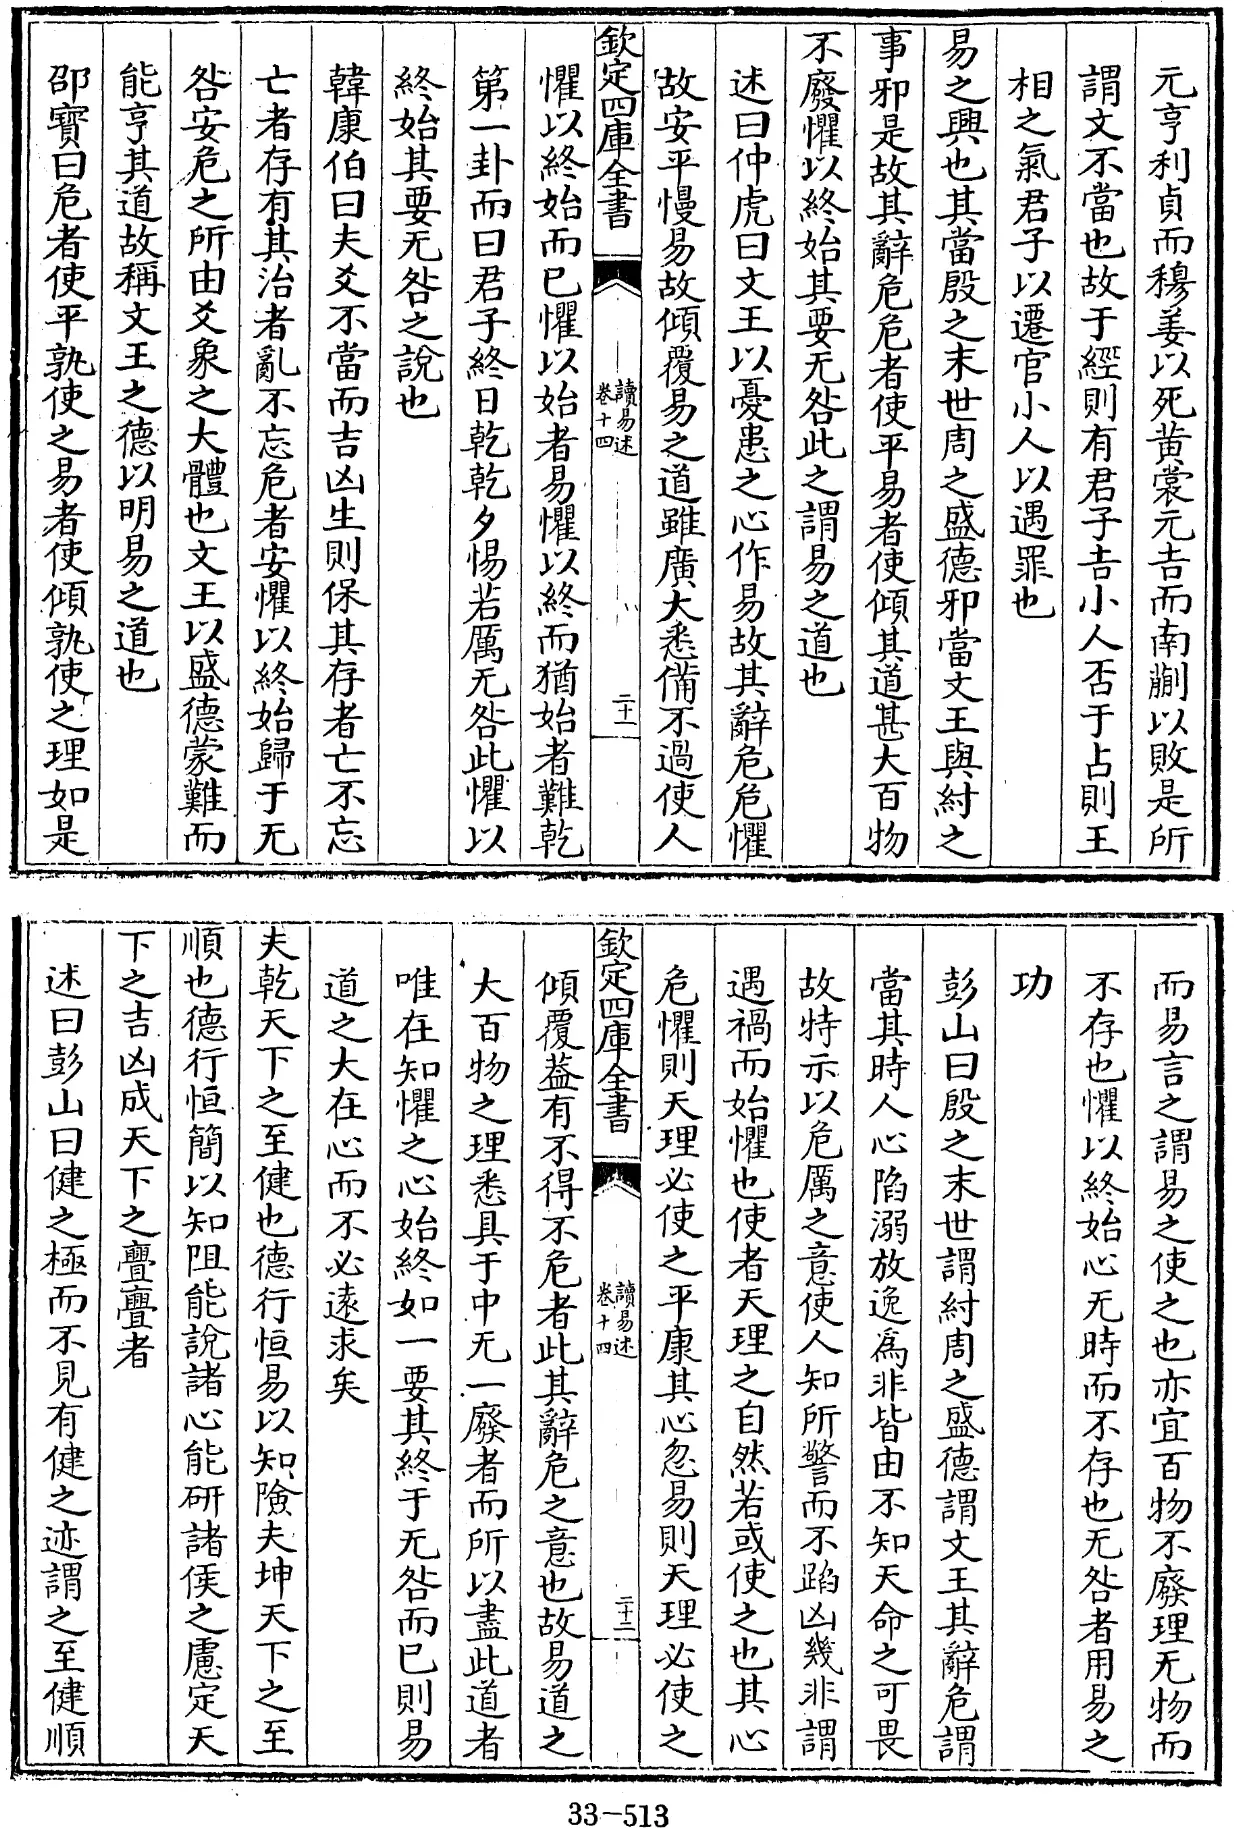 元亨利貞而穆姜以死黄裳元吉而南蒯以敗是所
謂文不當也故于經則有君子吉小人否于占則王
相之氣君子以遷官小人以遇罪也
易之興也其當殷之末世周之盛德邪當文王與紂之
事邪是故其辭危危者使平易者使傾其道甚大百物
不廢懼以終始其要无咎此之謂易之道也
述曰仲虎曰文王以憂患之心作易故其辭危危懼
故安平慢易故傾覆易之道雖廣大悉備不過使人
欽定四庫全書
讀易述
卷十四
二十一
懼以終始而已懼以始者易懼以終而猶始者難乾
第一卦而曰君子終日乾乾夕惕若厲无咎此懼以
終始其要无咎之說也
韓康伯曰夫爻不當而吉凶生則保其存者亡不忘
亡者存有其治者亂不忘危者安懼以終始歸于无
咎安危之所由爻象之大體也文王以盛德蒙難而
能亨其道故稱文王之德以明易之道也
邵寶曰危者使平孰使之易者使傾孰使之理如是
而易言之謂易之使之也亦宜百物不廢理无物而
不存也懼以終始心无時而不存也无咎者用易之
功
彭山曰殷之末世謂紂周之盛德謂文王其辭危謂
當其時人心陷溺放逸爲非皆由不知天命之可畏
故特示以危厲之意使人知所警而不蹈凶幾非謂
遇禍而始懼也使者天理之自然若或使之也其心
危懼則天理必使之平康其心忽易則天理必使之
欽定四庫全書
讀易述
卷十四
二十二
傾覆葢有不得不危者此其辭危之意也故易道之
大百物之理悉具于中无一廢者而所以盡此道者
唯在知懼之心始終如一要其終于无咎而已則易
道之大在心而不必遠求矣
夫乾天下之至健也德行恒易以知險夫坤天下之至
順也德行恒簡以知阻能說諸心能研諸侯之慮定天
下之吉凶成天下之亹亹者
述曰彭山曰健之極而不見有健之迹謂之至健順
33-513